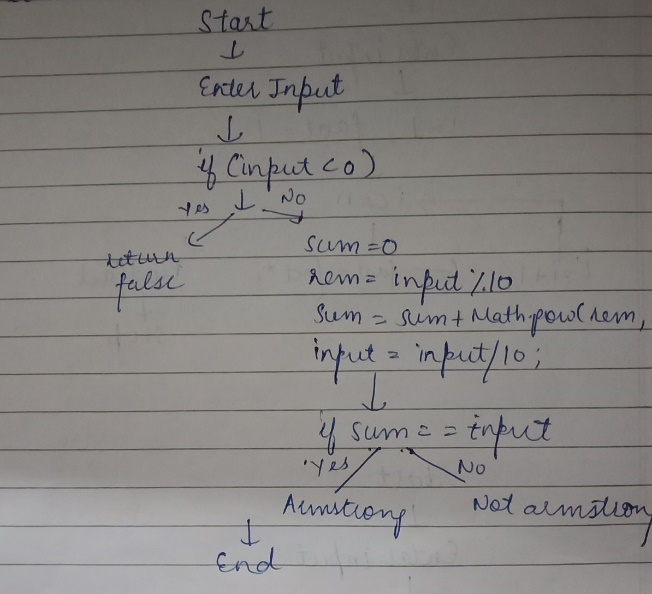 Start
Enter Input
if (input < 0)
Yes No
return
false
sum = 0
rem = input % 10
Sum = sum + Math.pow(rem,
input = input/10;
if sum == input
Yes No
Armstrong Not armstron
End